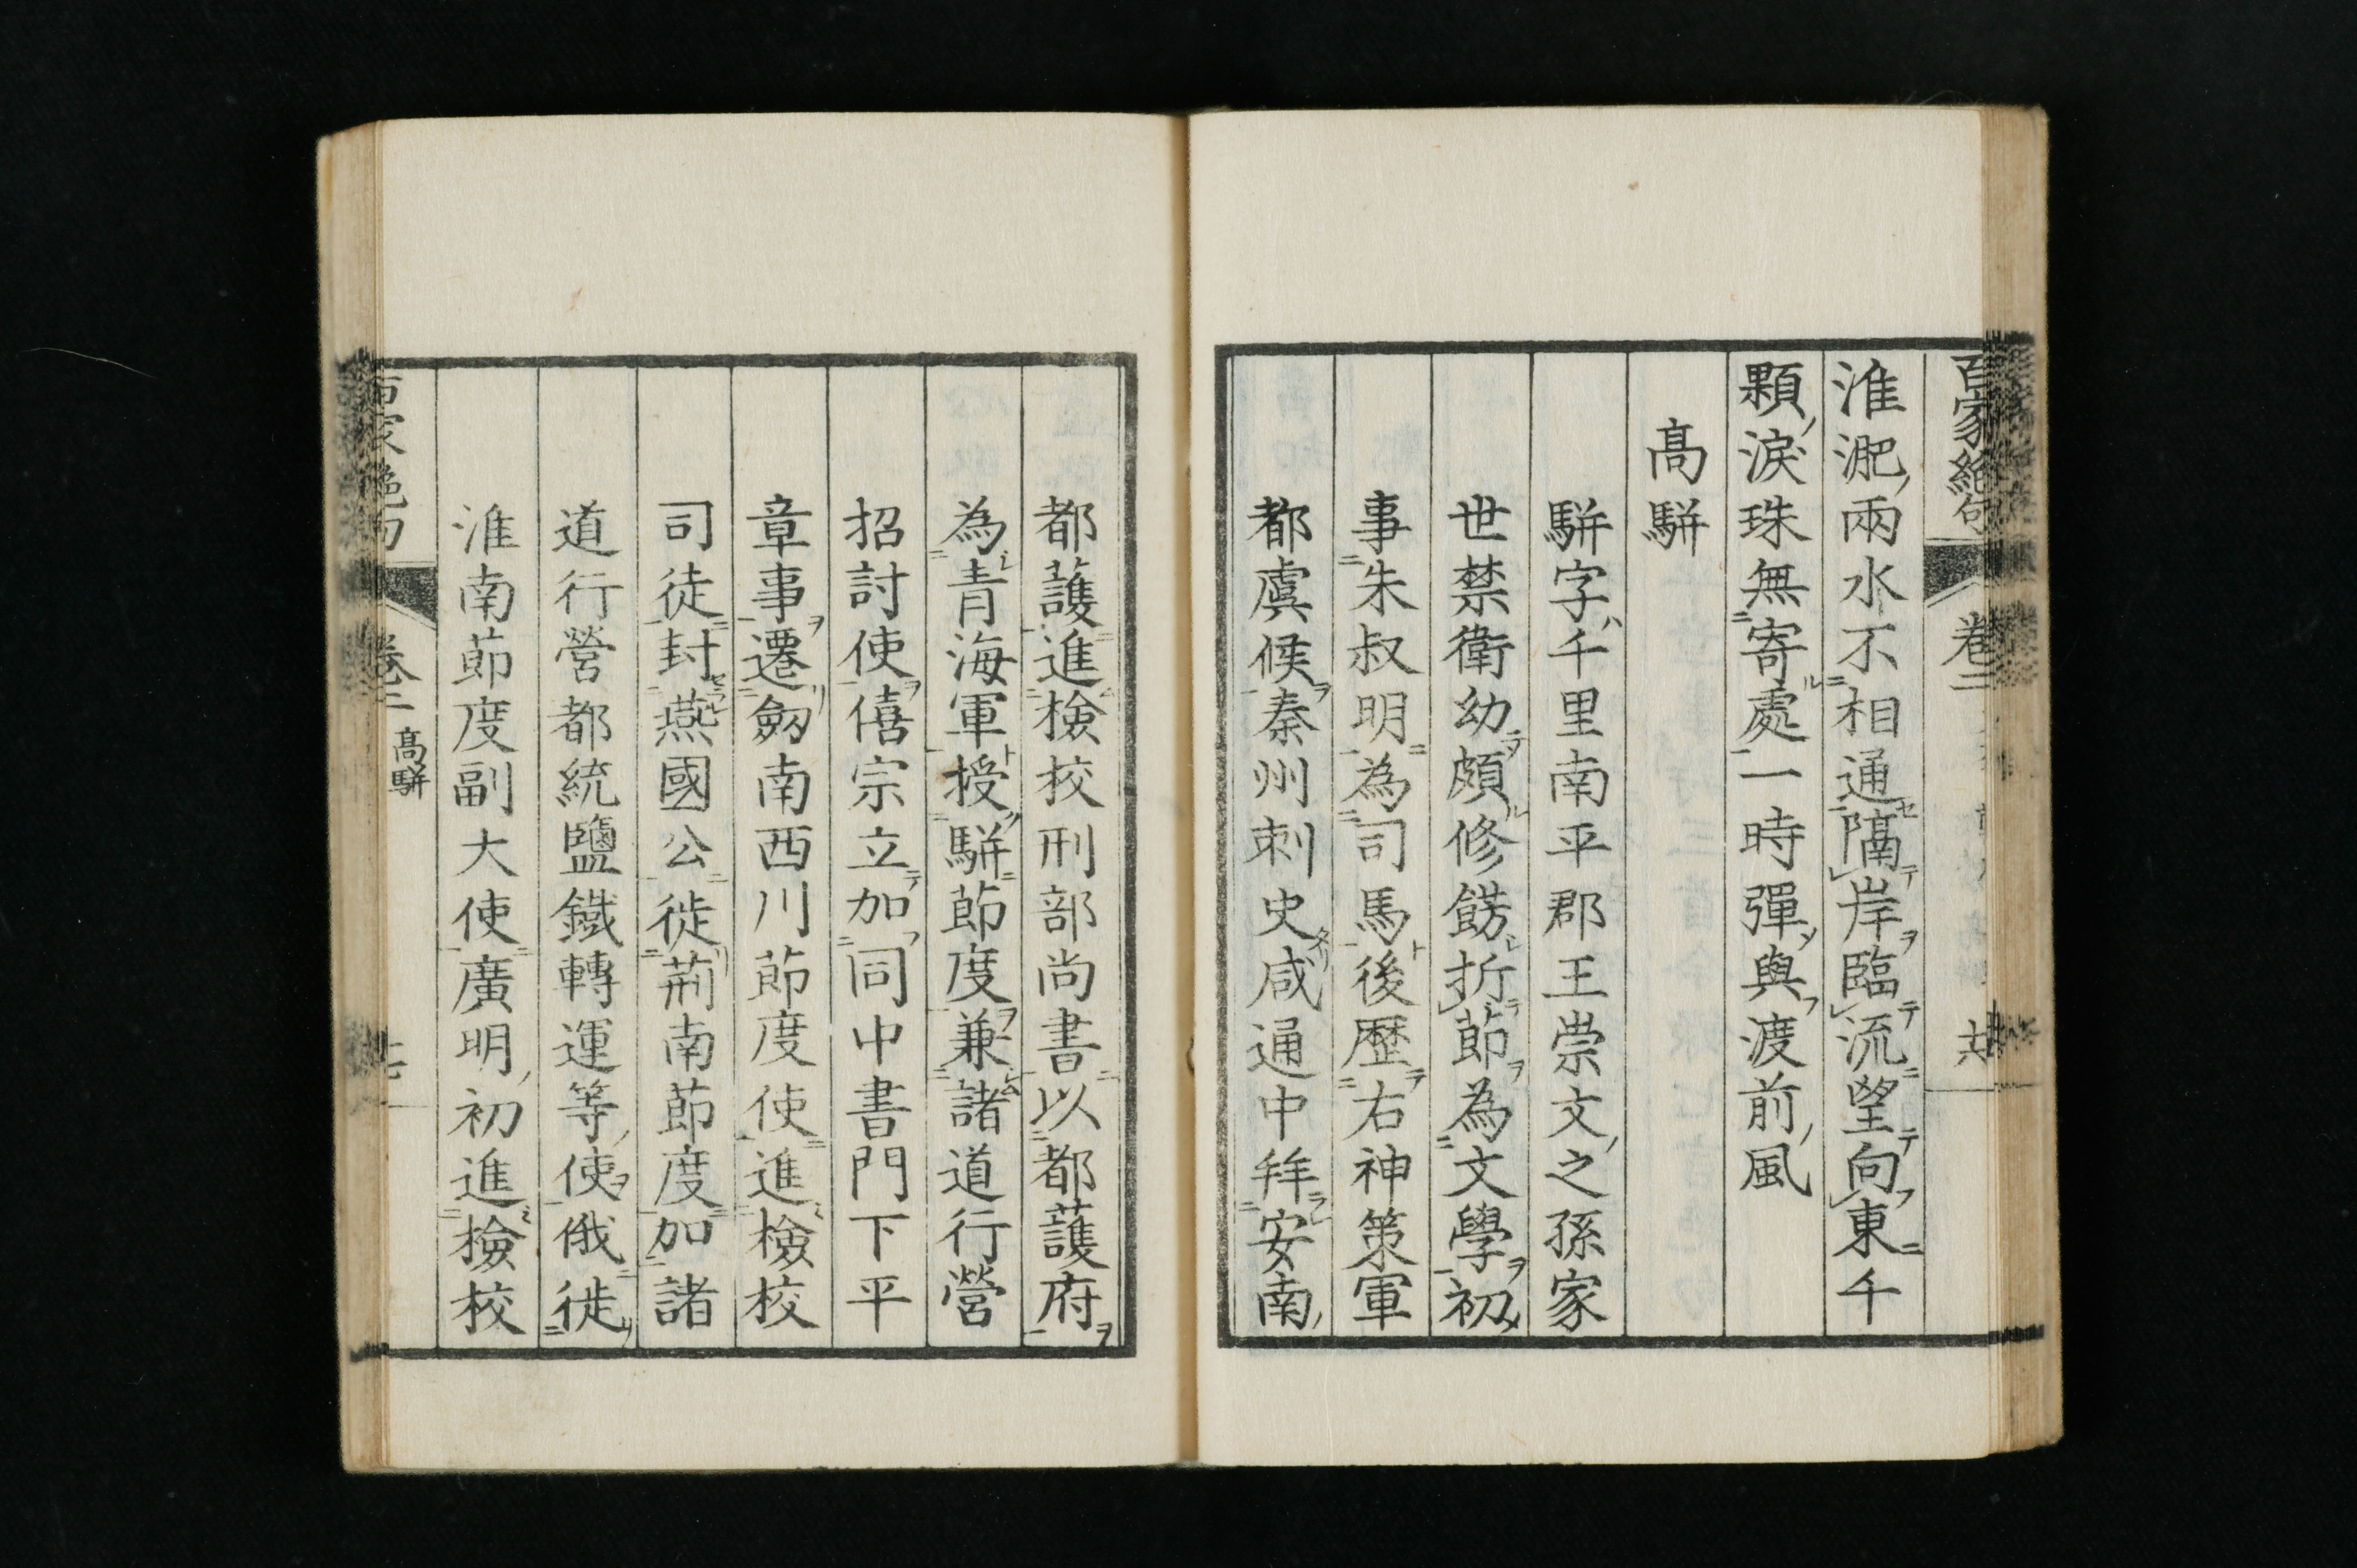 百家絶句 卷二 十六
淮淝兩水不相通隔岸臨流望向東千
顆淚珠無寄處一時彈與渡前風
高駢
駢字千里南平郡王崇文之孫家
世禁衛幼頗修餝折莭為文學初
事朱叔明為司馬後歷右神策軍
都虞候秦州刺史咸通中拜安南
都護進檢校刑部尚書以都護府
為青海軍授駢莭度兼諸道行營
招討使僖宗立加同中書門下平
章事遷劔南西川莭度使進檢校
司徒封燕國公徙荊南莭度加諸
道行營都統鹽鐵轉運等使俄徙
淮南莭度副大使廣明初進檢校
百家絶句 卷二 高駢 十七